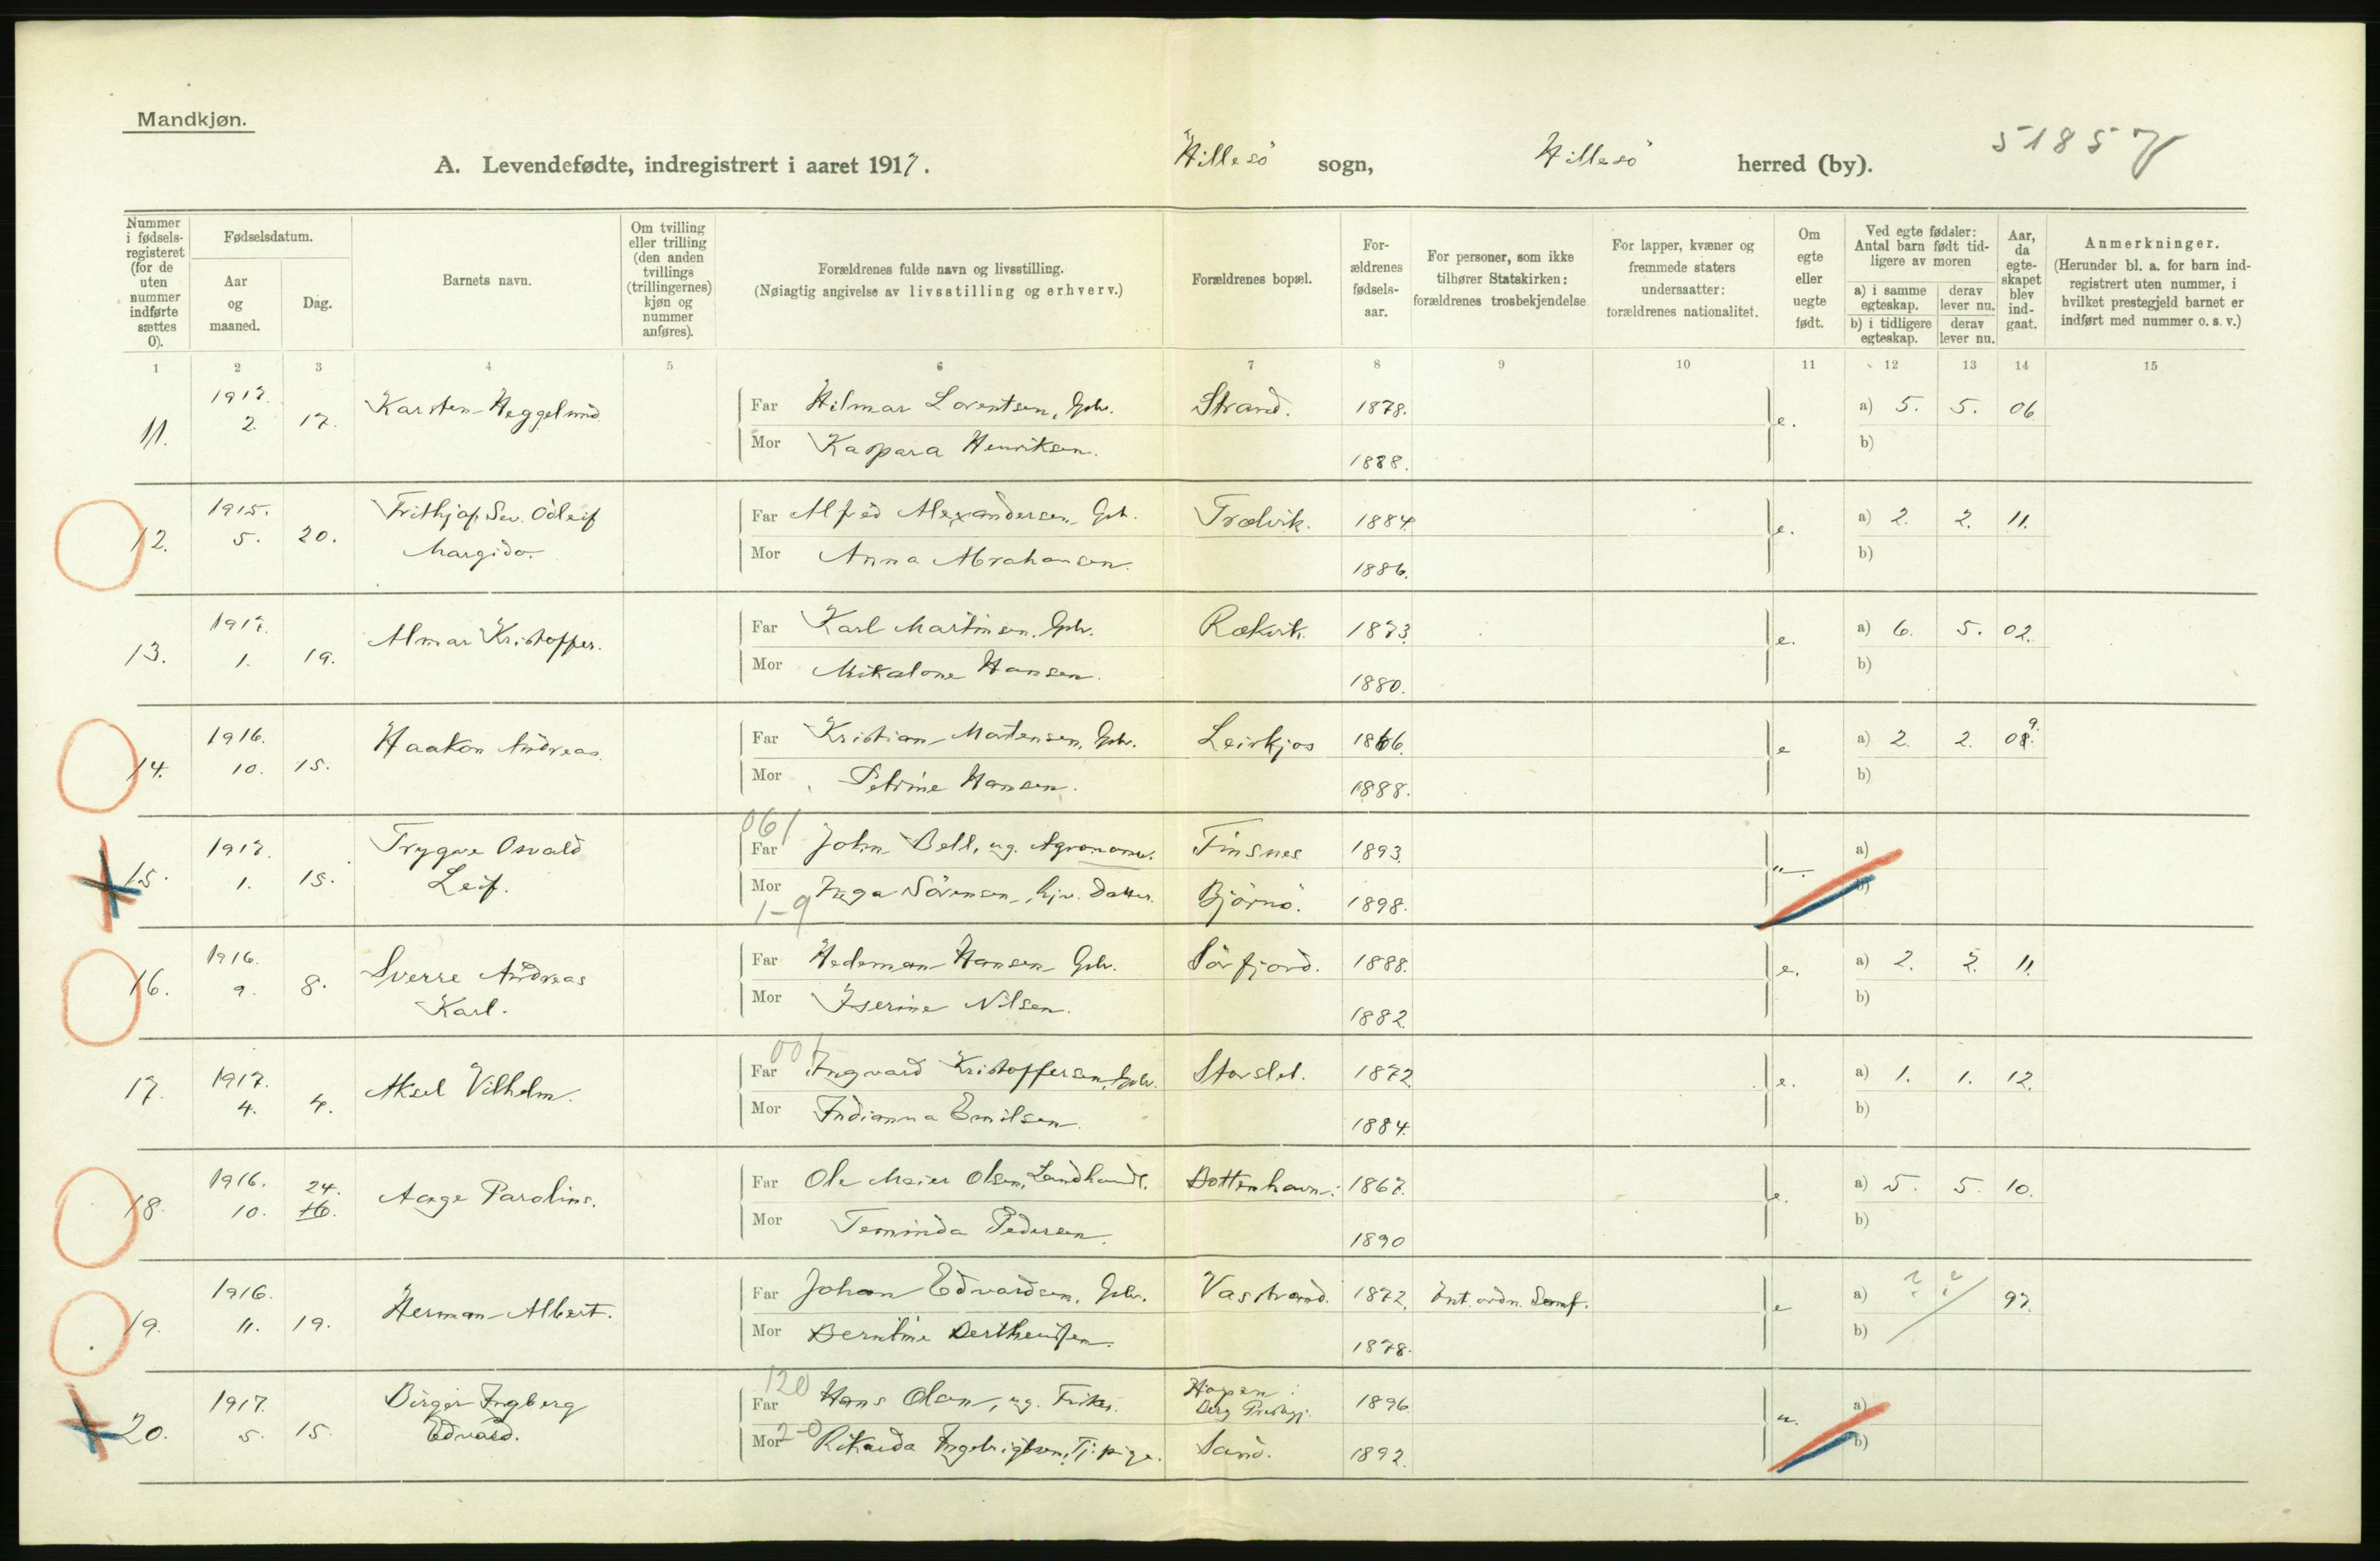 Mandkjøn.
A. Levendefødte, indregistrert i aaret 1917.
Hillesö sogn, Hillesö herred (by).
5185
Nummer i fødsels-registeret (for de uten nummer indførte sættes 0).
Fødselsdatum.
Aar og maaned.
Dag.
Barnets navn.
Om tvilling eller trilling (den anden tvillings (trillingernes) kjøn og nummer anføres).
Forældrenes fulde navn og livsstilling.
(Nøiagtig angivelse av livsstilling og erhverv.)
Forældrenes bopæl.
For-ældrenes fødsels-aar.
For personer, som ikke tilhører Statskirken: forældrenes trosbekjendelse
For lapper, kvæner og fremmede staters undersaatter: forældrenes nationalitet.
Om egte eller uegte født.
Ved egte fødsler: Antal barn født tid-ligere av moren
a) i samme egteskap.
derav lever nu.
b) i tidligere egteskap.
derav lever nu.
Aar, da egte-skapet blev ind-gaat.
Anmerkninger.
(Herunder bl. a. for barn ind-registrert uten nummer, i hvilket prestegjeld barnet er indført med nummer o. s. v.)
1 2 3 4 5 6 7 8 9 10 11 12 13 14 15
11. 1917. 2. 17. Karsten Heggelund
Far Hilmar Lorentsen, Gbr. Strand. 1878. e. a) 5. 5. 06
Mor Kaspara Henriksen. 1888. b)
12. 1915. 5. 20. Frithjof Sev. Odleif
Margido.
Far Alfred Alexandersen, Gbr. Trælvik. 1884. e. a) 2. 2. 11.
Mor Anna Abrahamsen. 1886. b)
13. 1917. 1. 19. Almar Kristoffer.
Far Karl Martinsen, Gbr. Rækvik. 1873. e. a) 6. 5. 02.
Mor Mikalone Hansen. 1880. b)
14. 1916. 10. 15. Haakon Andreas.
Far Kristian Mortensen, Gbr. Leirkjos 1866. e a) 2. 2. 08. 9.
Mor Petrine Hansen. 1888. b)
061
15. 1917. 1. 15. Trygve Osvald
Leif.
Far John Bell, ug. Agronom. Finsnes 1893. u. a)
Mor Inga Sörensen, hjv. Datter. Björnö. 1898. b)
1-9
16. 1916. 9. 8. Sverre Andreas
Karl.
Far Hedeman Hansen Gbr. Sörfjord. 1888. e. a) 2. 2. 11.
Mor Iserine Nilsen. 1882 b)
001
17. 1917. 4. 4. Aksel Vilhelm.
Far Ingvard Kristoffersen, Gbr. Storslet. 1872 e. a) 1. 1. 12.
Mor Indianna Emilsen. 1884. b)
18. 1916. 10. 24. 16. Aage Parolius.
Far Ole Meier Olsen, Landhandl. Bottenhavn. 1867. e. a) 5. 5. 10.
Mor Terminda Pedersen. 1890 b)
19. 1916. 11. 19. Herman Albert.
Far Johan Edvardsen, Gbr. Vasstrand. 1872. Int. ordn. Samf. e a) ? ? 97.
Mor Berntine Bertheussen. 1878. b)
120
20. 1917. 5. 15. Birger Ingberg
Edvard.
Far Hans Olsen, ug. Fisker. Hopen Berg Prestegj. 1896. u. a)
Mor 2-0 Rikarda Ingebrigtsen, Tj. pige. Sand. 1892. b)